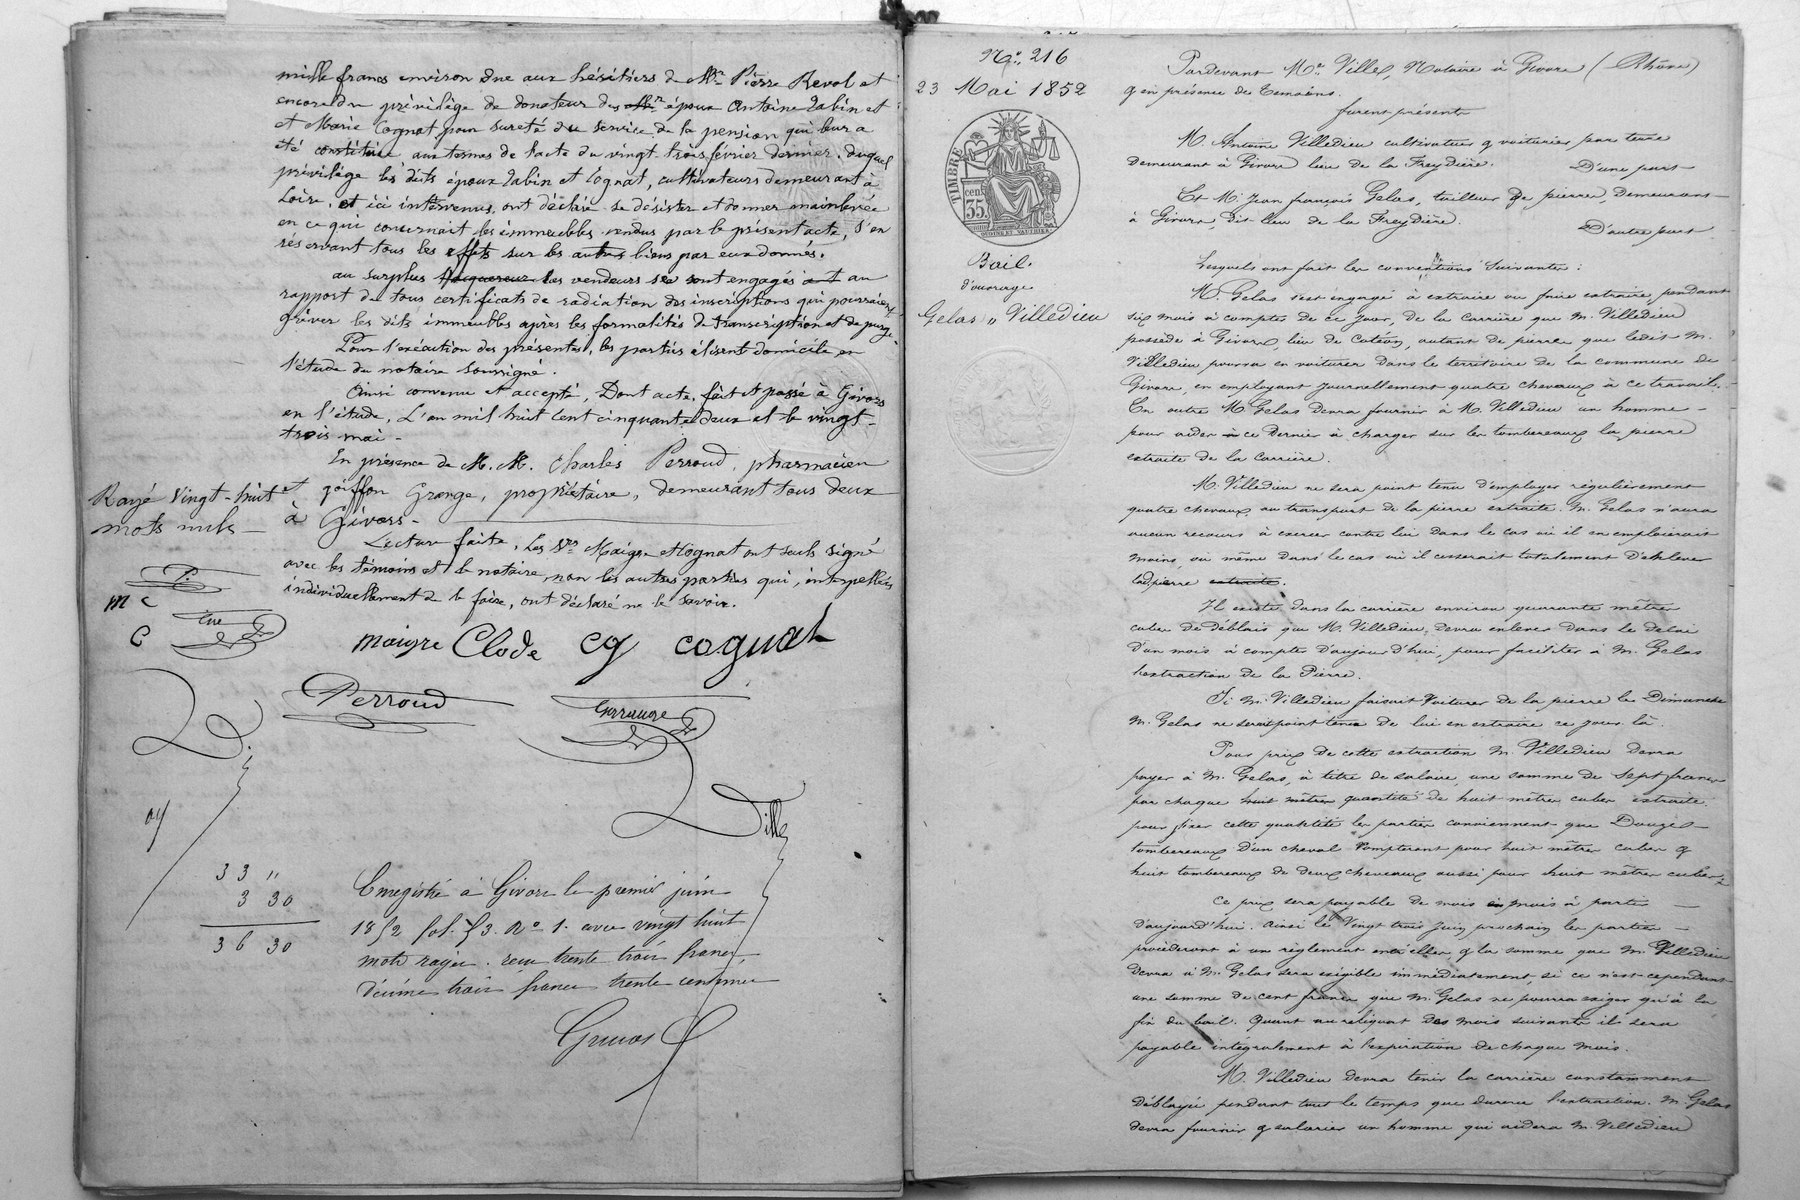 mille francs environ due aux héritiers de Mr Pierre Revol et
encore du privilège de donateur des Mr époux Antoine Zabin et
et Marie Cognat pour sureté du service de la pension qui leur a
été constituée aux termes de l'acte du vingt trois février dernier, duquel
privilège les dits époux Zabin et Cognat, cultivateurs demeurant à
Loire, et ici intervenus, ont déclaré se désister et donner mainlevée
en ce qui concernait les immeubles vendus par le présent acte, s'en
réservant tous les effets sur les autres biens par eux donnés.
au surplus l'acquereur les vendeurs se sont engagés au
rapport de tous certificats de radiation des inscriptions qui pourraient
grever les dits immeubles après les formalités de transcription et de purge.
Pour l'exécution des présentes, les parties élisent domicile en
l'étude du notaire soussigné.
Ainsi convenu et accepté, Dont acte, fait et passé à Givors
en l'étude, L'an mil huit cent cinquante deux et le vingt-
trois mai -
En présence de M. M. Charles Perroud, pharmacien
et goiffon Grange, propriétaire, demeurant tous deux
à Givors -
Rayé vingt-huit
mots nuls -
Lecture faite, Les Srs Maigre et Cognat ont seuls signé
avec les témoins et le notaire, non les autres parties qui, interpellées
individuellement de le faire, ont déclaré ne le savoir.
P.
m c
C
maigre Clode cg cognat
Perroud
Ville
33 "
3 30
36 30
Enregistré à Givors le premier juin
1852 fol. 53. No 1. avec vingt huit
mots rayés. reçu trente trois francs,
décime trois francs trente centimes
No. 216
23 Mai 1852
TIMBRE
35 cent
OUDINE ET VAUTHIER
Bail.
d'ouvrage
Gelas " Villedieu
Pardevant Me. Ville, Notaire à Givors (Rhône)
& en présence des témoins.
furent présents
M. Antoine Villedieu cultivateur & voiturier par terre
demeurant à Givors lieu de la Freydière. D'une part
Et M. Jean françois Gelas, tailleur de pierre, demeurant
à Givors, dit lieu de la Freydière D'autre part
Lesquels ont fait les conventions suivantes:
M. Gelas s'est engagé à extraire ou faire extraire, pendant
six mois à compter de ce jour, de la carrière que m. Villedieu
possède à Givors, lieu de Cotéon, autant de pierre que ledit M.
Villedieu pourra en voiturer dans le territoire de la commune de
Givors, en employant journellement quatre chevaux à ce travail.
En outre M. Gelas devra fournir à M. Villedieu un homme
pour aider à ce dernier à charger sur les tombereaux la pierre
extraite de la carrière.
M. Villedieu ne sera point tenu d'employer régulièrement
quatre chevaux au transport de la pierre extraite. M. Gelas n'aura
aucun recours à exercer contre lui dans le cas où il en emploierait
moins, ou même dans le cas où il cesserait totalement d'enlever
ladpierre extraite.
Il existe dans la carrière environ quarante mètres
cubes de déblais que M. Villedieu, devra enlever dans le délai
d'un mois à compter d'aujourd'hui, pour faciliter à M. Gelas
l'extraction de la Pierre.
Si M. Villedieu faisait Voiturer de la pierre le Dimanche
M. Gelas ne serait point tenu de lui en extraire ce jour là.
Pour prix de cette extraction M. Villedieu devra
payer à M. Gelas, à titre de salaire, une somme de sept francs
par chaque huit mètres quantité de huit mètres cubes extraite.
pour fixer cette quantité les parties conviennent que Douze
tombereaux d'un cheval compteront pour huit mètres cubes &
huit tombereaux de deux chevaux aussi pour huit mètres cubes.
Ce prix sera payable de mois en mois à partir
d'aujourd'hui. ainsi le Vingt trois Juin prochain les parties
procèderont à un règlement entr'elles & la somme que M. Villedieu
devra à M. Gelas sera exigible immédiatement, si ce n'est cependant
une somme de cent francs que M. Gelas ne pourra exiger qu'à la
fin du bail. Quant au reliquat des mois suivants il sera
payable intégralement à l'expiration de chaque mois.
M. Villedieu devra tenir la carrière constamment
déblayée pendant tout le temps que durera l'extraction. M. Gelas
devra fournir & salarier un homme qui aidera M. Villedieu